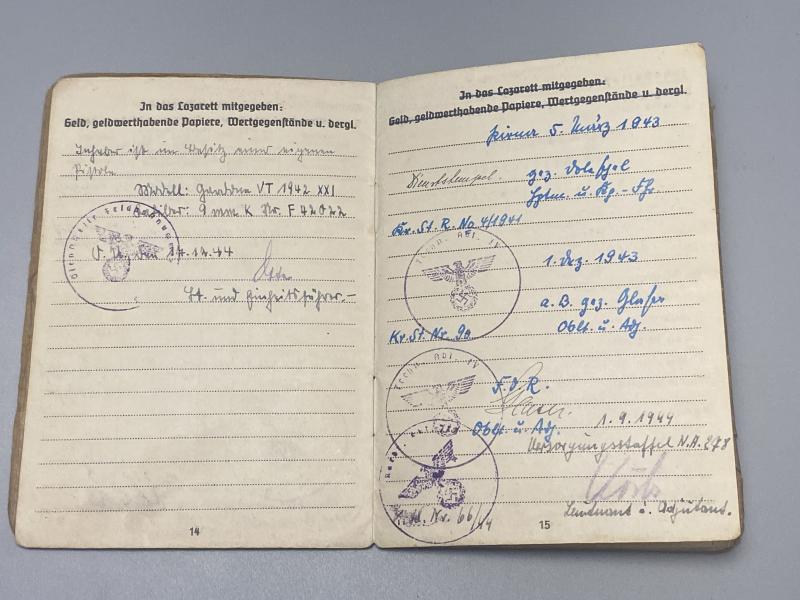 In das Lazarett mitgegeben:
Geld, geldwerthabende Papiere, Wertgegenstände u. dergl.
Inhaber ist im Besitz einer eigenen
Pistole
Modell: VT 1942 XXI
Kaliber: 9 mm K Nr. F 42022
den 27.12.44
Lt. und Einheitsführer.-
14
In das Lazarett mitgegeben:
Geld, geldwerthabende Papiere, Wertgegenstände u. dergl.
Pirna 5. März 1943
Dienststempel gez.
Hptm. u. Kp.-Fhr.
Kr. St. R. No 4/1941
Techn. Abt. IV
1. Dez. 1943
a. B. gez. Glaser
Oblt. u. Adj.
Kr. St. Nr. 9a
Techn. Abt. IV
F. d. R.
Oblt. u. Adj.
1.9.1944
Versorgungsstaffel N.A. 278
Nr. 66/44
Leutnant u. Adjutant.
15